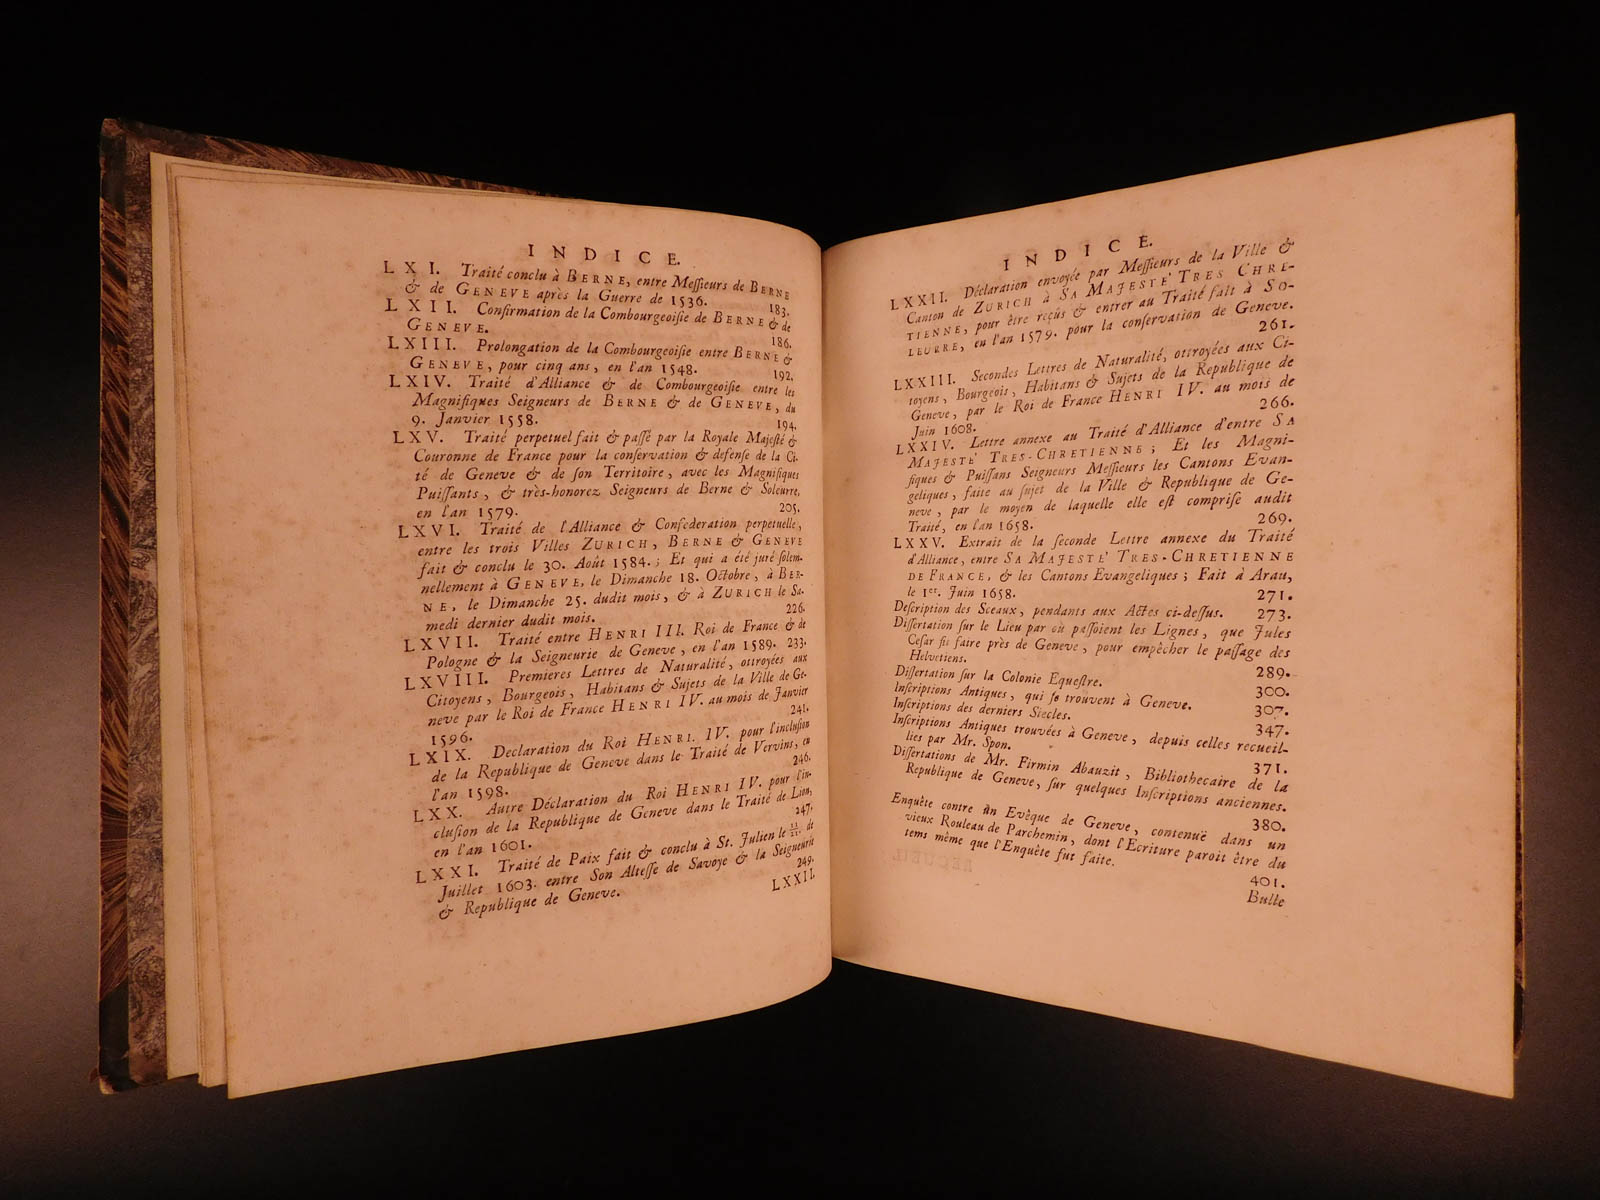 INDICE.
LXI. Traité conclu à BERNE, entre Meſſieurs de BERNE
& de GENEVE après la Guerre de 1536. 183.
LXII. Confirmation de la Combourgeoiſie de BERNE & de
GENEVE. 186.
LXIII. Prolongation de la Combourgeoiſie entre BERNE &
GENEVE, pour cinq ans, en l'an 1548. 192.
LXIV. Traité d'Alliance & de Combourgeoiſie entre les
Magnifiques Seigneurs de BERNE & de GENEVE, du
9. Janvier 1558. 194.
LXV. Traité perpetuel fait & paſſé par la Royale Majeſté &
Couronne de France pour la conſervation & défenſe de la Ci-
té de Geneve & de ſon Territoire, avec les Magnifiques
Puiſſants, & très-honorez Seigneurs de Berne & Soleurre,
en l'an 1579. 205.
LXVI. Traité de l'Alliance & Confederation perpetuelle,
entre les trois Villes ZURICH, BERNE & GENEVE
fait & conclu le 30. Août 1584.; Et qui a été juré ſolem-
nellement à GENEVE, le Dimanche 18. Octobre, à BER-
NE, le Dimanche 25. dudit mois, & à ZURICH le Sa-
medi dernier dudit mois. 226.
LXVII. Traité entre HENRI III. Roi de France & de
Pologne & la Seigneurie de Geneve, en l'an 1589. 233.
LXVIII. Premieres Lettres de Naturalité, ottroyées aux
Citoyens, Bourgeois, Habitans & Sujets de la Ville de Ge-
neve par le Roi de France HENRI IV. au mois de Janvier
1596. 241.
LXIX. Declaration du Roi HENRI. IV. pour l'incluſion
de la Republique de Geneve dans le Traité de Vervins, en
l'an 1598. 246.
LXX. Autre Déclaration du Roi HENRI IV. pour l'in-
cluſion de la Republique de Geneve dans le Traité de Lion,
en l'an 1601. 247.
LXXI. Traité de Paix fait & conclu à St. Julien le 11/21. de
Juillet 1603. entre Son Alteſſe de Savoye & la Seigneurie
& Republique de Geneve. 249.
LXXII.
INDICE.
LXXII. Déclaration envoyée par Meſſieurs de la Ville &
Canton de ZURICH à SA MAJESTE' TRES CHRE-
TIENNE, pour être reçûs & entrer au Traité fait à SO-
LEURRE, en l'an 1579. pour la conſervation de Geneve.
261.
LXXIII. Secondes Lettres de Naturalité, ottroyées aux Ci-
toyens, Bourgeois, Habitans & Sujets de la Republique de
Geneve, par le Roi de France HENRI IV. au mois de
Juin 1608. 266.
LXXIV. Lettre annexe au Traité d'Alliance d'entre SA
MAJESTE' TRES-CHRETIENNE; Et les Magni-
fiques & Puiſſans Seigneurs Meſſieurs les Cantons Evan-
geliques, faite au ſujet de la Ville & Republique de Ge-
neve, par le moyen de laquelle elle eſt compriſe audit
Traité, en l'an 1658. 269.
LXXV. Extrait de la ſeconde Lettre annexe du Traité
d'Alliance, entre SA MAJESTE' TRES-CHRETIENNE
DE FRANCE, & les Cantons Evangeliques; Fait à Arau,
le 1er. Juin 1658. 271.
Deſcription des Sceaux, pendants aux Actes ci-deſſus. 273.
Diſſertation ſur le Lieu par où paſſoient les Lignes, que Jules
Ceſar fit faire près de Geneve, pour empêcher le paſſage des
Helvetiens. 289.
Diſſertation ſur la Colonie Equeſtre. 300.
Inſcriptions Antiques, qui ſe trouvent à Geneve. 307.
Inſcriptions des derniers Siecles. 347.
Inſcriptions Antiques trouvées à Geneve, depuis celles recueil-
lies par Mr. Spon. 371.
Diſſertations de Mr. Firmin Abauzit, Bibliothecaire de la
Republique de Geneve, ſur quelques Inſcriptions anciennes.
380.
Enquête contre un Evêque de Geneve, contenuë dans un
vieux Rouleau de Parchemin, dont l'Ecriture paroit être du
tems même que l'Enquête fut faite. 401.
Bulle